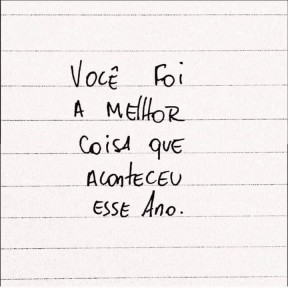 VOCÊ FOI
A MELHOR
COISA QUE
ACONTECEU
ESSE ANO.